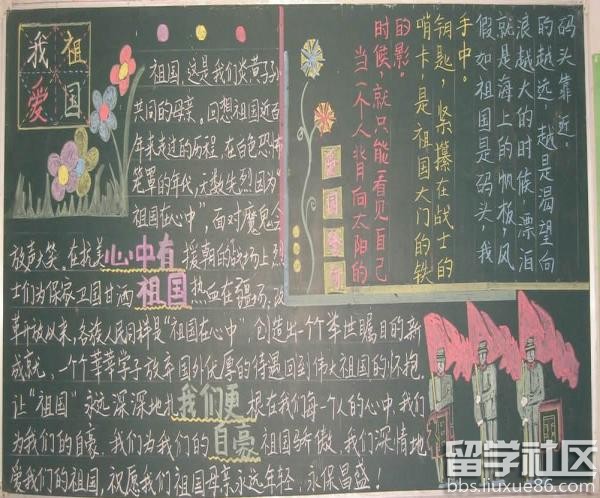 我爱祖国
祖国,这是我们炎黄子孙
共同的母亲。回想祖国近百
年来走过的历程,在白色恐怖
笼罩的年代,无数先烈因为“
祖国在心中”,面对魔鬼会
放声大笑。在抗美 援朝的战场上烈
心中有
士们为保家卫国甘洒 热血在疆场。改
祖国
革开放以来,各族人民同样是“祖国在心中”,创造出一个个举世瞩目的新
成就。一个个莘莘学子放弃国外优厚的待遇回到伟大祖国的怀抱,
让“祖国”永远深深地扎 根在我们每一个人的心中,我们
我们更
为我们的自豪。我们为我们的 祖国骄傲。我们深情地
自豪
爱我们的祖国,祝愿我们祖国母亲永远年轻,永保昌盛!
假如祖国是码头,我
就是海上的帆板,风
浪越大的时候,漂泊
的越远,越是渴望向
码头靠近。
哨卡,是祖国大门的铁
钥匙,紧攥在战士的
手中。
当一个人背向太阳的
时候,就只能看见自己
的影。
留学社区
bbs.liuxue86.com